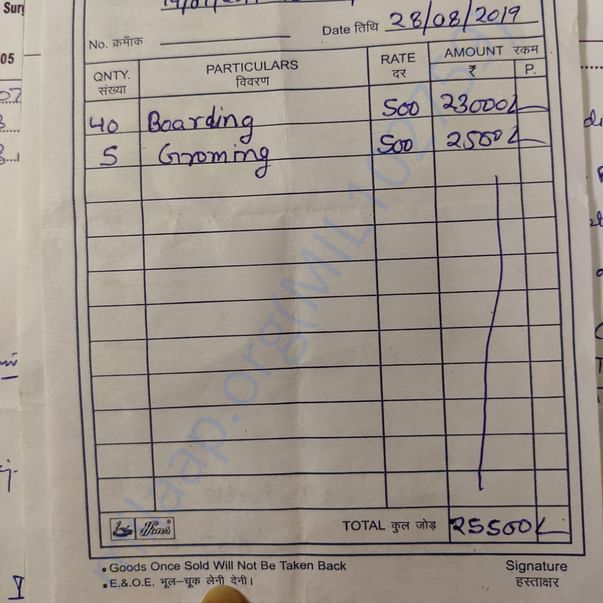 Date तिथि 28/08/2019
No. क्रमाँक
QNTY. संख्या PARTICULARS विवरण RATE दर AMOUNT रकम ₹ P.
40 Boarding 500 23000/-
5 Groming 500 2500/-
TOTAL कुल जोड़ 25500/-
• Goods Once Sold Will Not Be Taken Back Signature
• E.&.O.E. भूल–चूक लेनी देनी। हस्ताक्षर
milaap.org(MIL102759)
05